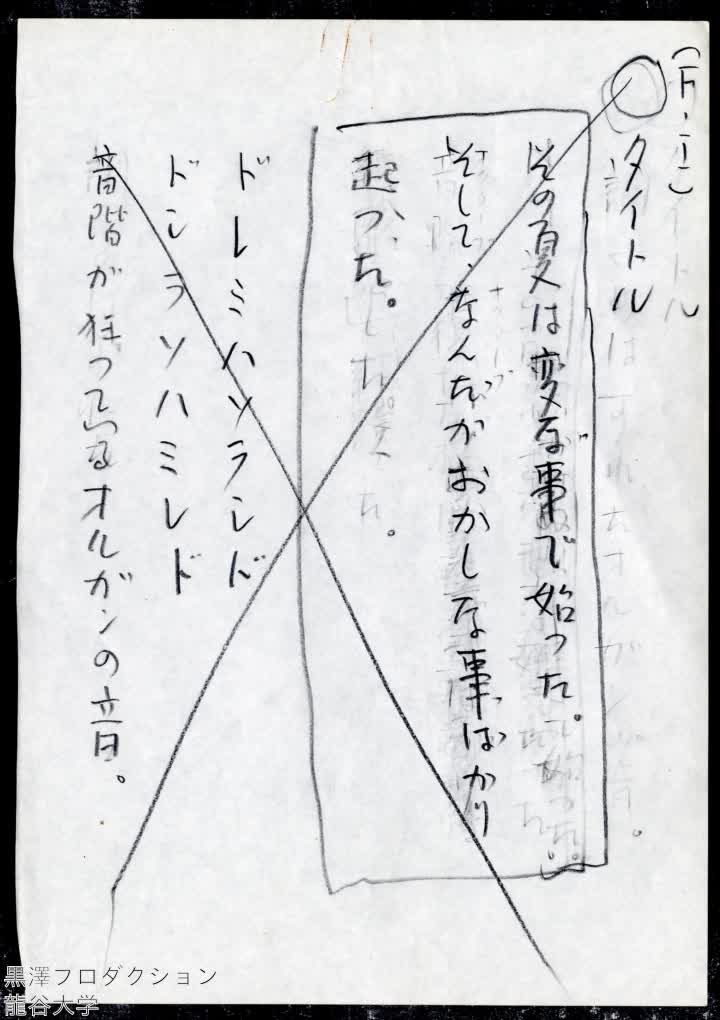 (F・I)
タイトル
その夏は変な事で始った。
そして、なんだかおかしな事ばかり
起った。
ドレミハソラシド
ドシラソハミレド
音階が狂っているオルガンの音。
黒澤プロダクション
龍谷大学